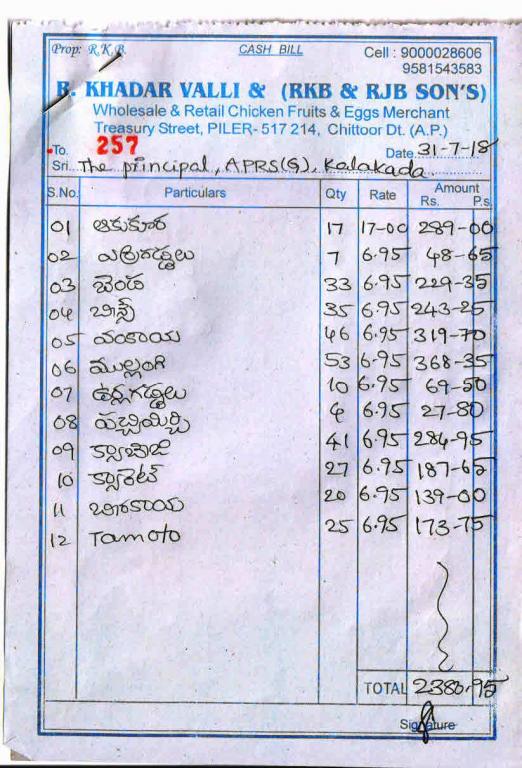 Prop: R.K.B. CASH BILL Cell : 9000028606
9581543583
R. KHADAR VALLI & (RKB & RJB SON'S)
Wholesale & Retail Chicken Fruits & Eggs Merchant
Treasury Street, PILER- 517 214, Chittoor Dt. (A.P.)
To. 257 Date 31-7-18
Sri. The principal, APRS(G), Kalakada
S.No. Particulars Qty Rate Amount
Rs. P.s.
01 ఆకుకూర 17 17-00 289-00
02 ఎర్రగడ్డలు 7 6.95 48-65
03 బెండ 33 6.95 229-35
04 బీన్స్ 35 6.95 243-25
05 వంకాయ 46 6.95 319-70
06 ముల్లంగి 53 6.95 368-35
07 ఉర్లగడ్డలు 10 6.95 69-50
08 పచ్చిమిర్చి 4 6.95 27-80
09 క్యాబేజి 41 6.95 284-95
10 క్యారెట్ 27 6.95 187-65
11 బీరకాయ 20 6.95 139-00
12 Tamoto 25 6.95 173-75
TOTAL 2380.95
Signature